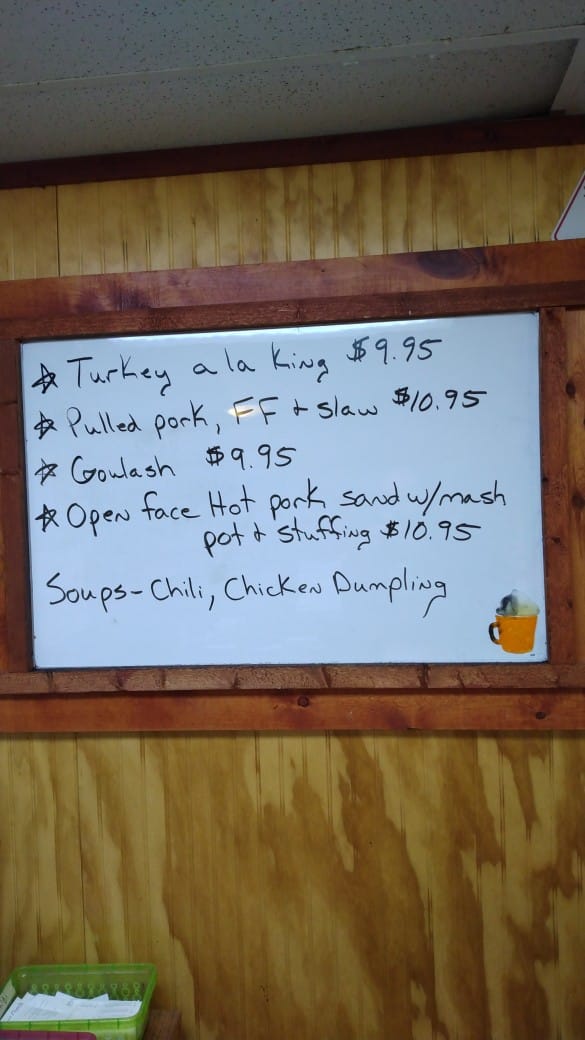 ☆ Turkey a la King $9.95
☆ Pulled pork, FF + slaw $10.95
☆ Goulash $9.95
☆ Open face Hot pork sand w/mash
pot + stuffing $10.95
Soups- Chili, Chicken Dumpling